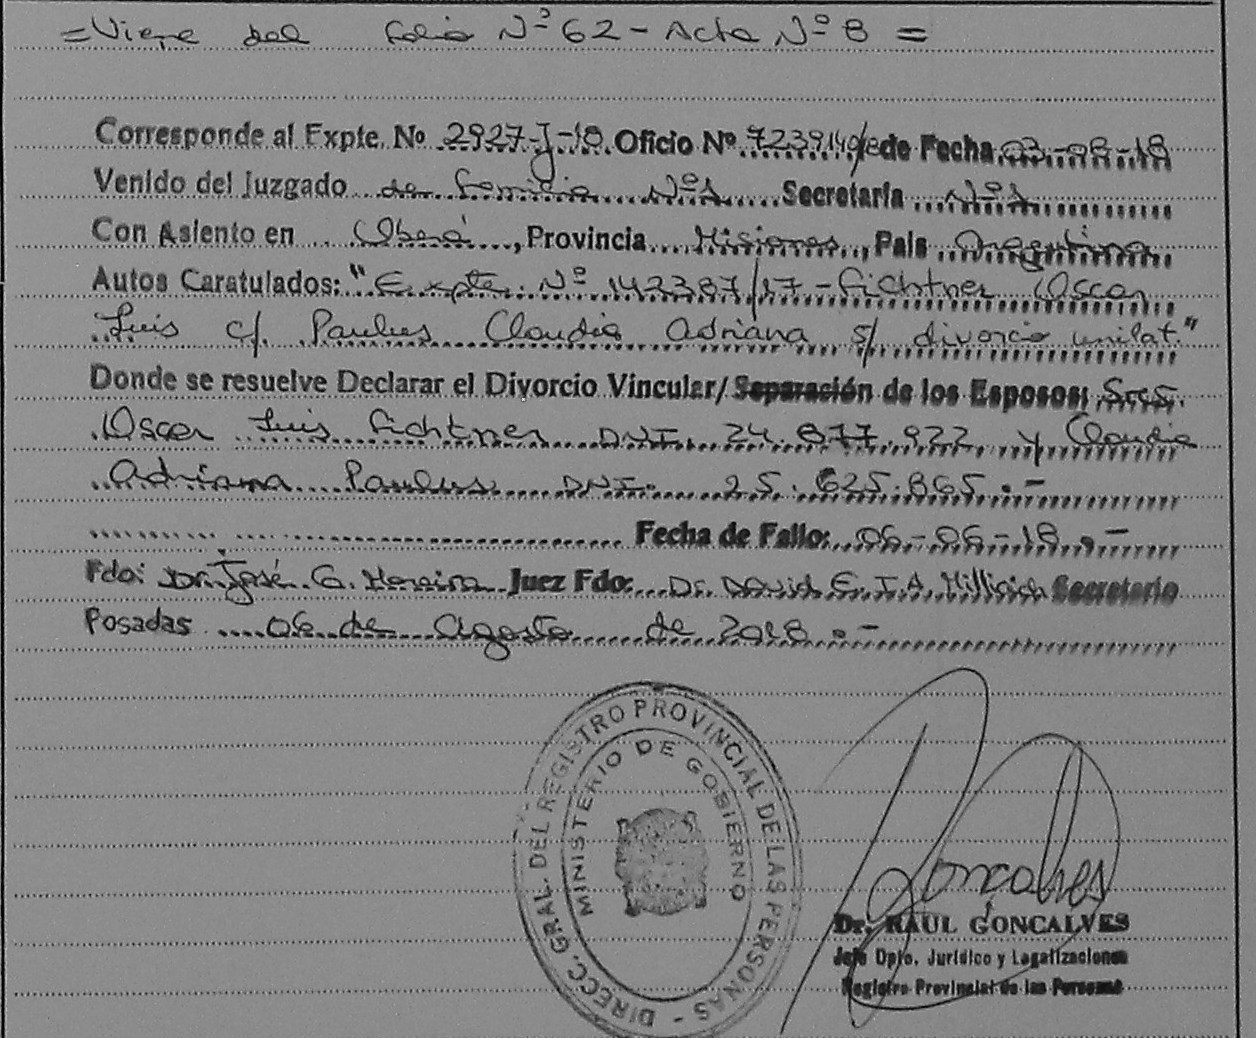 =Viene del folio Nº 62 - Acta Nº 8 =
Corresponde al Expte. Nº 2927-J-18. Oficio Nº 7239 de Fecha 03-08-18
Venido del Juzgado de Familia Nº1 Secretaría Nº1
Con Asiento en Oberá, Provincia Misiones, País Argentina
Autos Caratulados: "Expte. Nº 142387/17 - Fichtner Oscar
Luis c/ Paulus Claudia Adriana s/ divorcio unilat."
Donde se resuelve Declarar el Divorcio Vincular/Separación de los Esposos: Sres.
Oscar Luis Fichtner DNI. 24.877.922 y Claudia
Adriana Paulus DNI. 25.625.865.-
Fecha de Fallo: 06-06-18.-
Fdo: Dr. José G. Moreira Juez Fdo: Dr. David E. I. A. Secretario
Posadas 06 de Agosto de 2018.-
DIRECC. GRAL. DEL REGISTRO PROVINCIAL DE LAS PERSONAS -
MINISTERIO DE GOBIERNO
Goncalves
Dr. RAUL GONCALVES
Jefe Dpto. Jurídico y Legalizaciones
Registro Provincial de las Personas